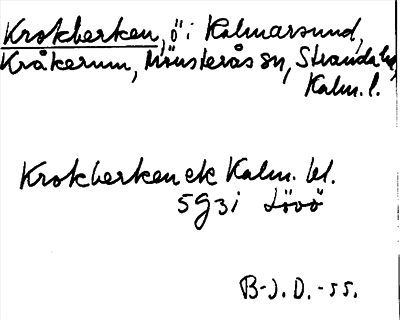 Krokberken, ö i Kalmarsund,
Kråkerum, Mönsterås sn, Stranda hd,
Kalm. l.
Krokberken ek Kalm. bl.
5g3i Lövö
B-J. D. -55.